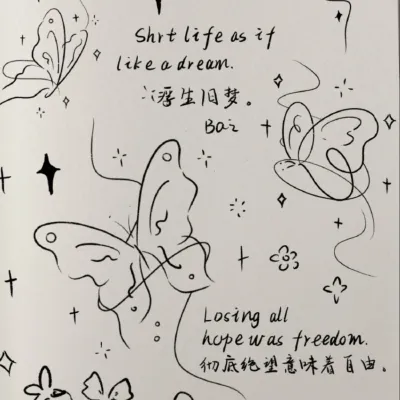 Shrt life as if
like a dream.
浮生旧梦。
Losing all
hope was freedom.
彻底绝望意味着自由。